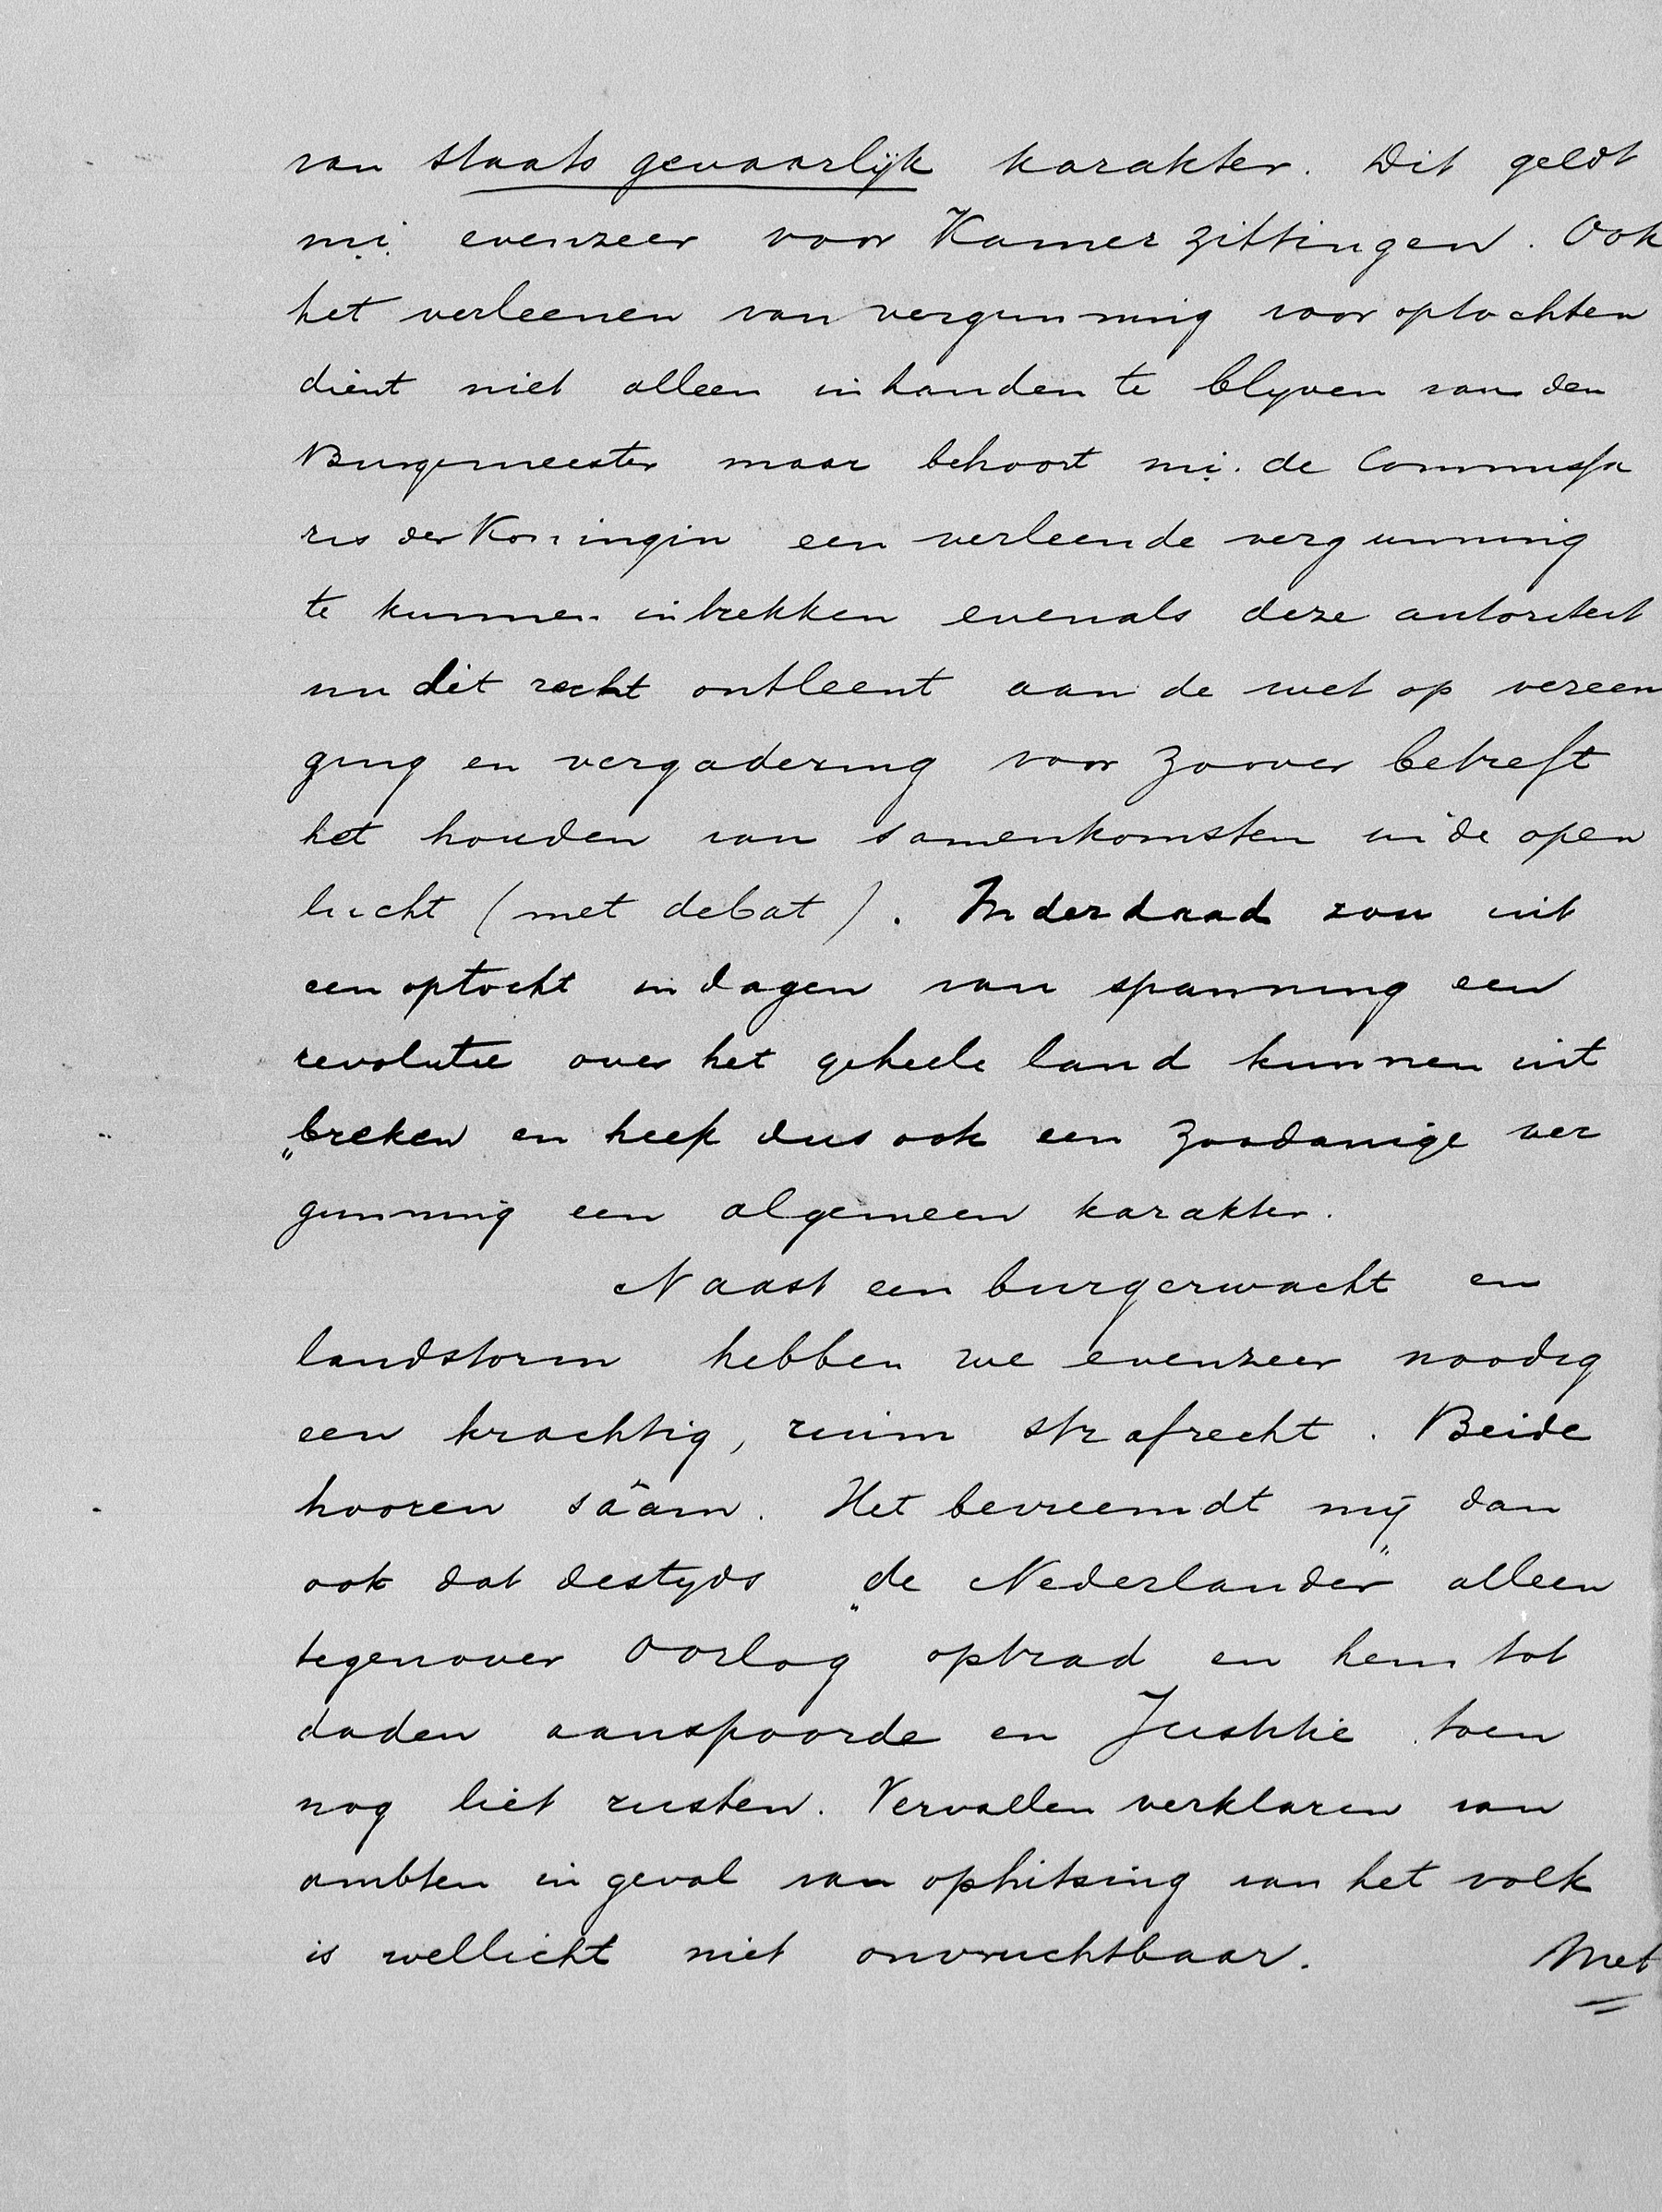 van staats gevaarlijk karakter. Dit geldt
m.i. evenzeer voor Kamer zittingen. Ook
het verleenen van vergunning voor optochten
dient niet alleen in handen te blyven van den
Burgemeester maar behoort m.i. de Commissa
ris der Koningin een verleende vergunning
te kunnen intrekken evenals deze autoriteit
nu dit recht ontleent aan de wet op vereen
ging en vergadering voor zoover betreft
het houden van samenkomsten in de open
lucht (met debat). Inderdaad zou uit
een optocht in dagen van spanning een
revolutie over het geheele land kunnen uit
„breken en heeft dus ook een zoodanige ver
gunning een algemeen karakter.
Naast een burgerwacht en
landstorm hebben we evenzeer noodig
een krachtig, ruim strafrecht. Beide
hooren sâam. Het bevreemdt mij dan
ook dat destyds „de Nederlander" alleen
tegenover Oorlog optrad en hem tot
daden aanspoorde en Justitie toen
nog liet rusten. Vervallen verklaren van
ambten in geval van ophitsing van het volk
is wellicht niet onvruchtbaar. Met